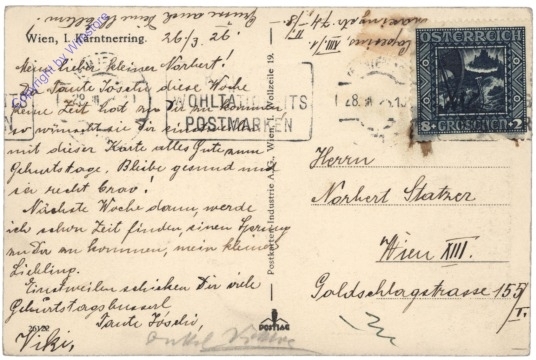 Grüsse auch Deine lb. Eltern
Wien, I. Kärntnerring.
26/3. 26.
Mein lieber kleiner Norbert!
Da Tante Jóschi diese Woche
keine Zeit hat zu Dir zu kommen,
so wünscht sie Dir einst
mit dieser Karte alles Gute zum
Geburtstage. Bleibe gesund und
sei recht brav!
Nächste Woche dann, werde
ich schon Zeit finden, einen Sprung
zu Dir zu kommen, mein kleiner
Liebling.
Einstweilen schicken Dir viele
Geburtstagsbusserl
Tante Jóschi,
Viki,
Onkel
26122
Copyright by
Postkarten-Industrie A.-G., Wien, I. Wollzeile 19.
POSTIAG
WOHLTÄTIGKEITS
POSTMARKEN
28. III
ÖSTERREICH
8+2
GROSCHEN
XIII/1
74-78
Herrn
Norbert Statzer
Wien XIII.
Goldschlagstrasse 155/
I.